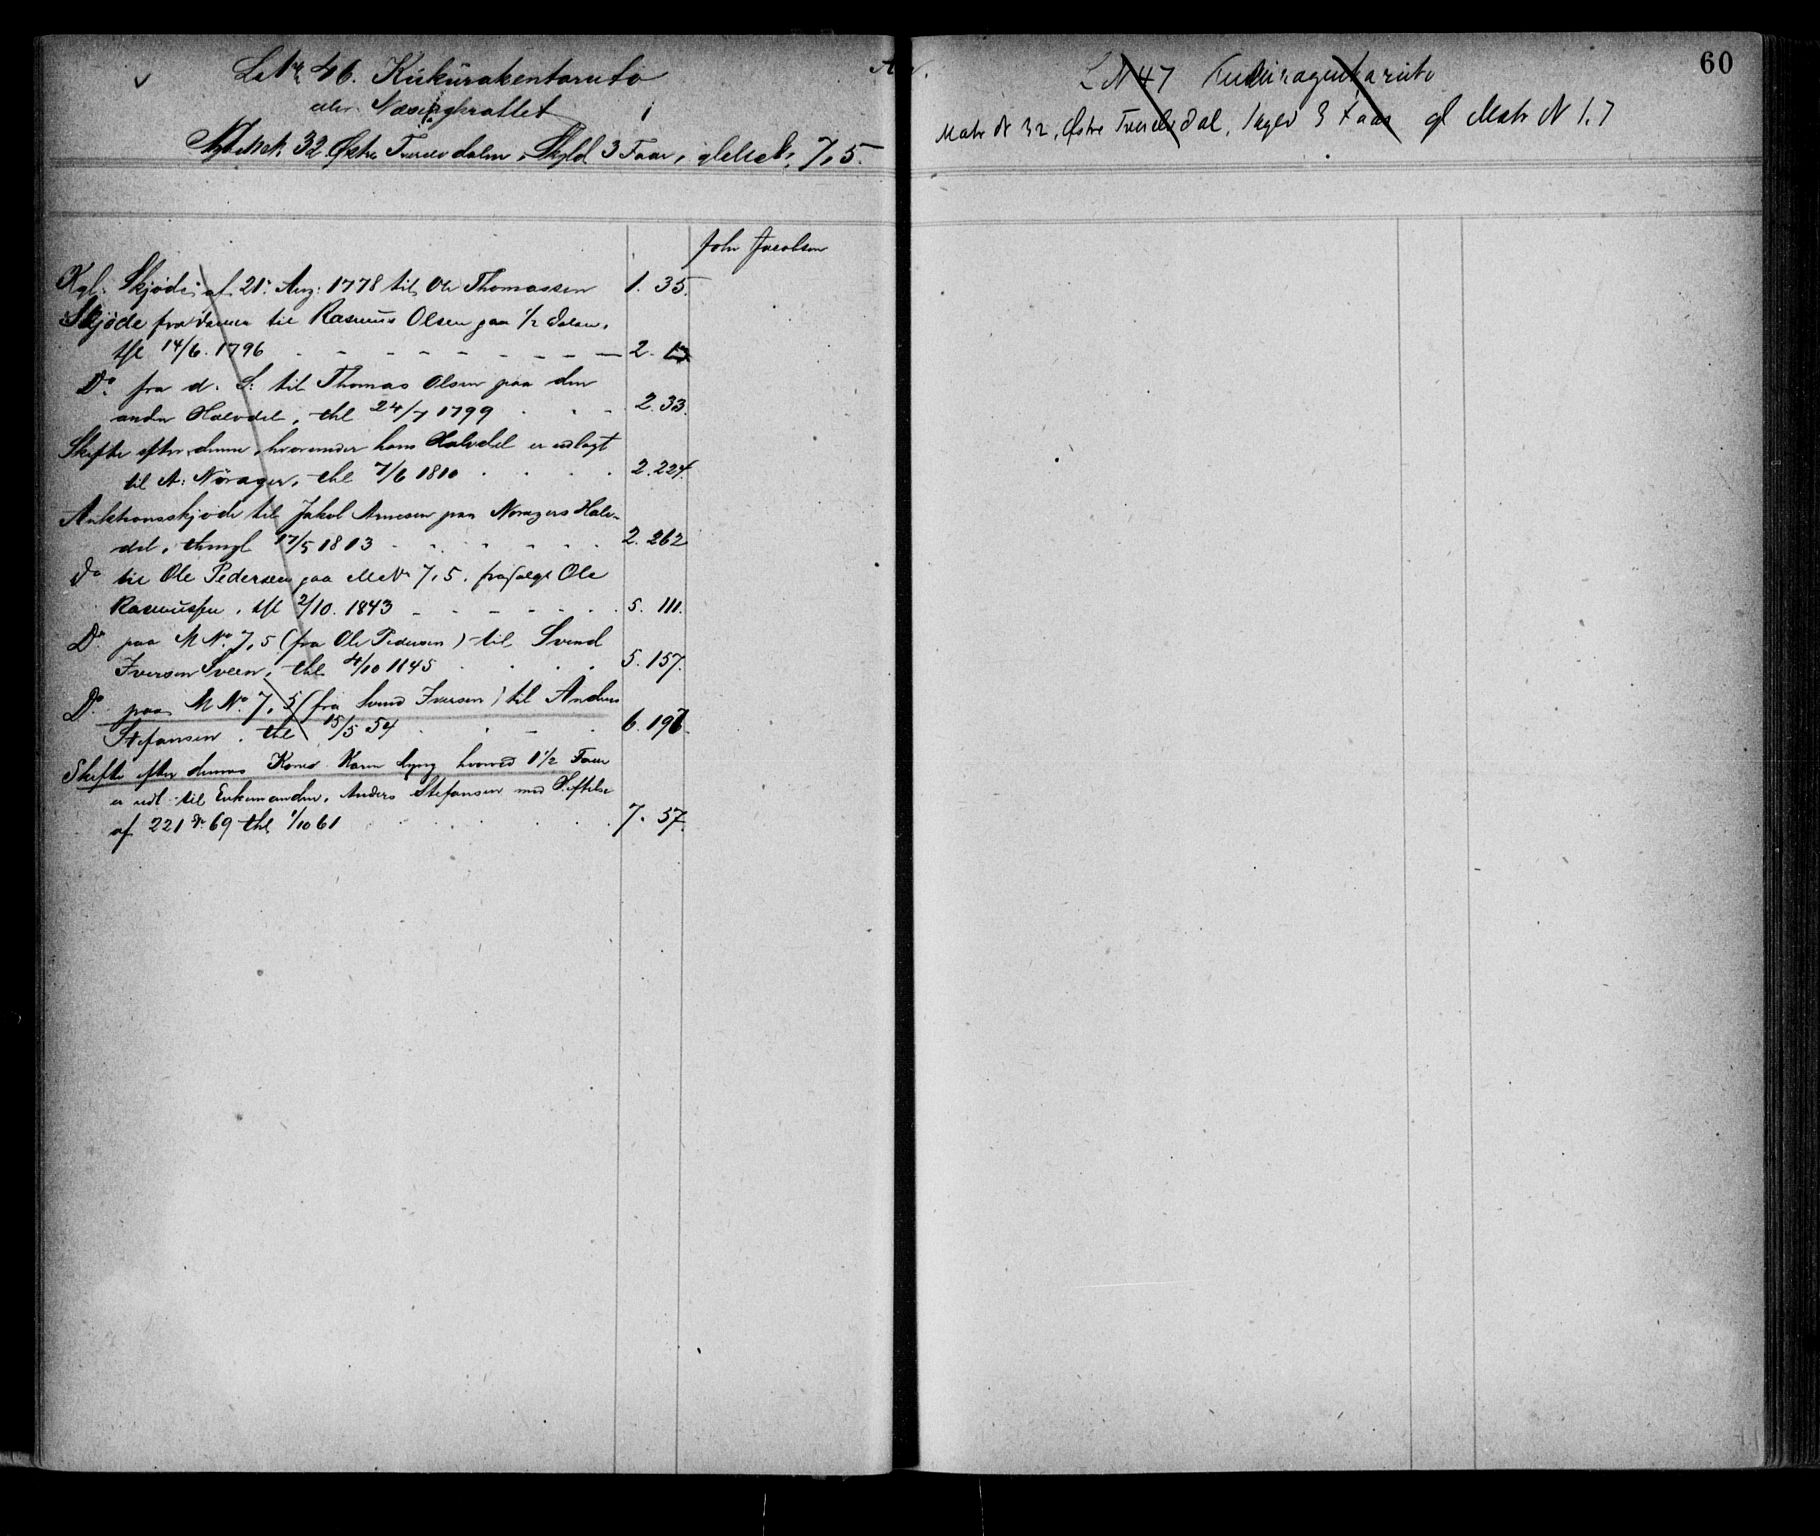 LNr 46. Kiskurakentaruto
eller Næsingkrattet
Nyt Mat. 32 Østre Tverelvdalen, Skyld 3 Faar, gl. Mat. 7,5.
John Jacobsen
Kgl. Skjøde af 21. Aug: 1778 til Ole Thomassen 1. 35.
Skjøde fra denne til Rasmus Olsen paa 1/2 Delen,
thl 14/6. 1796 2.
Do. fra d. S. til Thomas Olsen paa den
anden Halvdel, thl 24/7 1799 2. 33.
Skifte efter denne, hvorunder hans Halvdel er udlagt
til A: Nørager, thl 7/6 1810 2. 224.
Auktionsskjøde til Jakob Arnesen paa Noragers Halv-
del, thingl 17/5 1813 2. 262
Do til Ole Pedersen paa MNr 7,5. frasolgt Ole
Rasmussen, thl 2/10. 1843 5. 111.
Do. paa MNo. 7,5 (fra Ole Pedersen) til Svend
Iversen Sveen, thl 4/10 1145 5. 157.
Do. paa MNo. 7,5 (fra Svend Iversen) til Anders
Stefansen, thl 15/5 54 6. 197.
Skifte efter dennes Kone Karen hvorved 1 1/2 Faar
er udl. til Enkemanden, Anders Stefansen med Heftelse
af 221 d. 69 thl 1/10 61 7. 57.
60
LN 47
Matr N 32, Østre Tverelvdal, 3 Faar gl Matr N 1.7